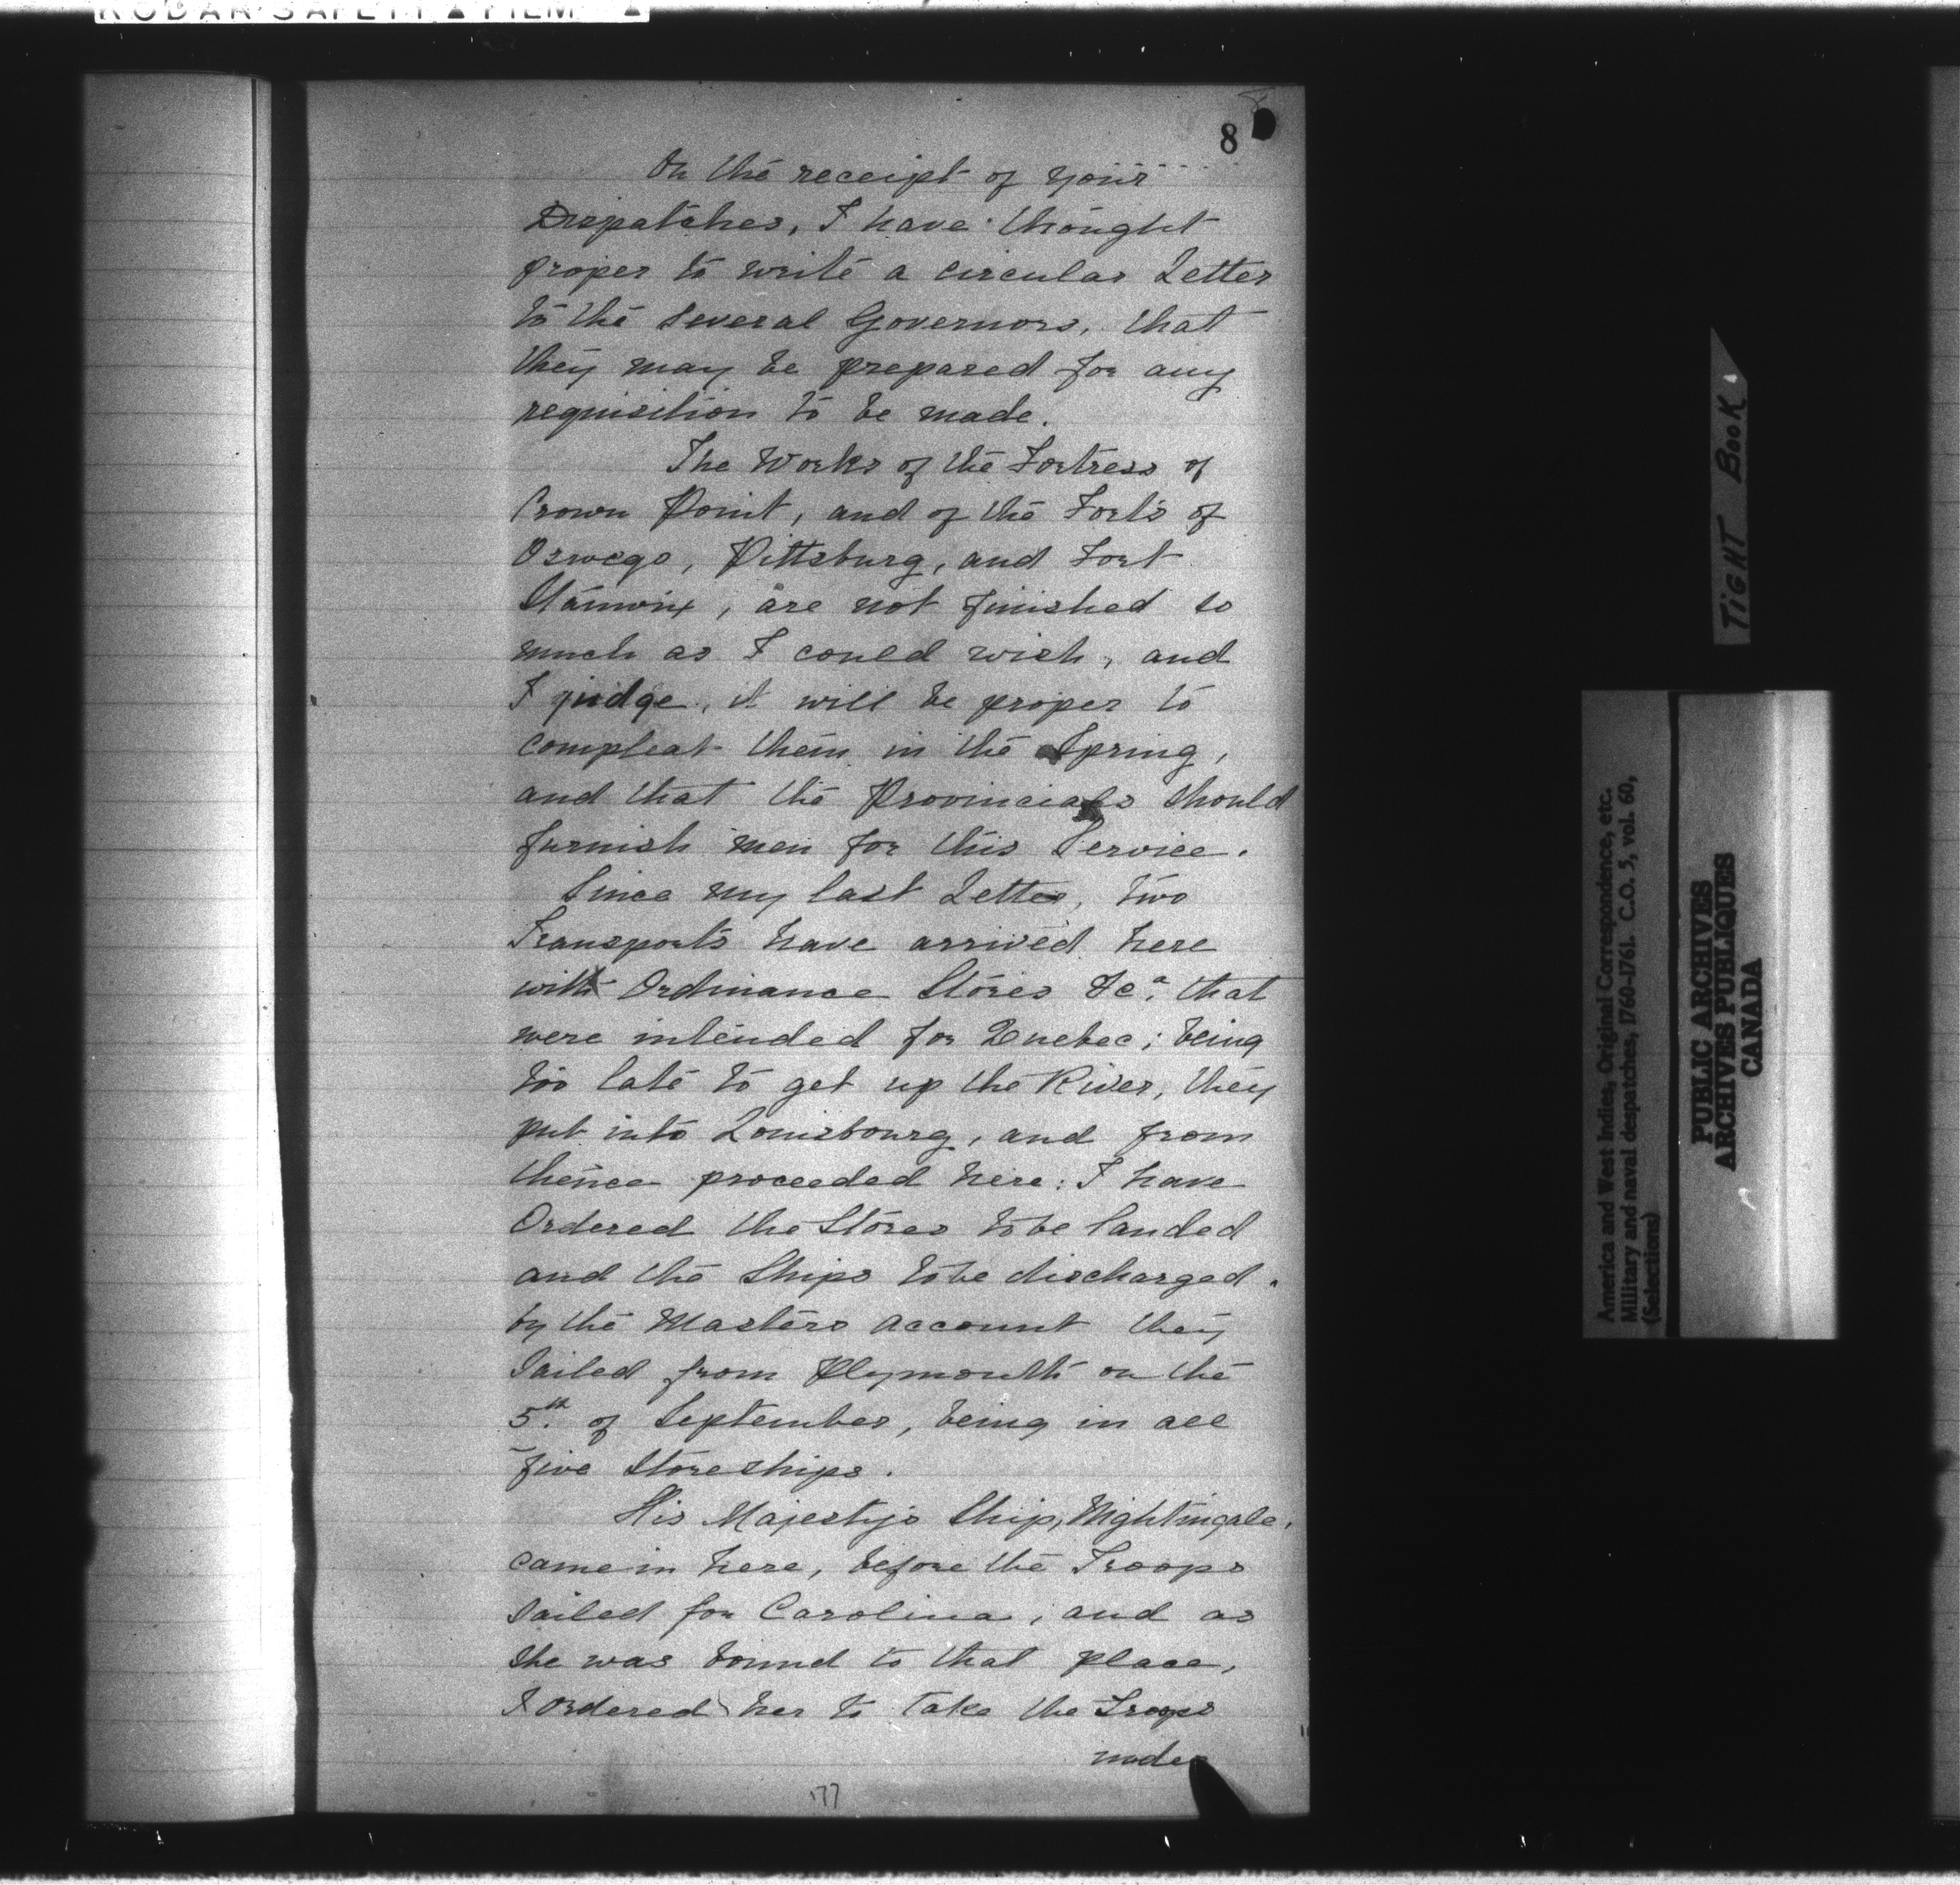 KODAK SAFETY ▲ FILM ▲
8
On the receipt of your
Dispatches, I have thought
proper to write a circular Letter
to the several Governors, that
they may be prepared for any
requisition to be made.
The Works of the Fortress of
Crown Point, and of the Forts of
Oswego, Pittsburg, and Fort
Stanwix, are not finished so
much as I could wish, and
I judge, it will be proper to
compleat them in the Spring,
and that the Provincials should
furnish men for this Service.
Since my last Letter, two
Transports have arrived here
with Ordinance Stores &ca. that
were intended for Quebec; being
too late to get up the River, they
put into Louisbourg, and from
thence proceeded here: I have
Ordered the Stores to be landed
and the Ships to be discharged.
by the Masters account they
Sailed from Plymouth on the
5th. of September, being in all
five Storeships.
His Majesty's Ship, Nightingale,
came in here, before the Troops
sailed for Carolina; and as
she was bound to that place,
I ordered her to take the Troops
under
177
TIGHT BOOK
America and West Indies, Original Correspondence, etc.
Military and naval despatches, 1760-1761. C.O. 5, vol. 60,
(Selections)
PUBLIC ARCHIVES
ARCHIVES PUBLIQUES
CANADA